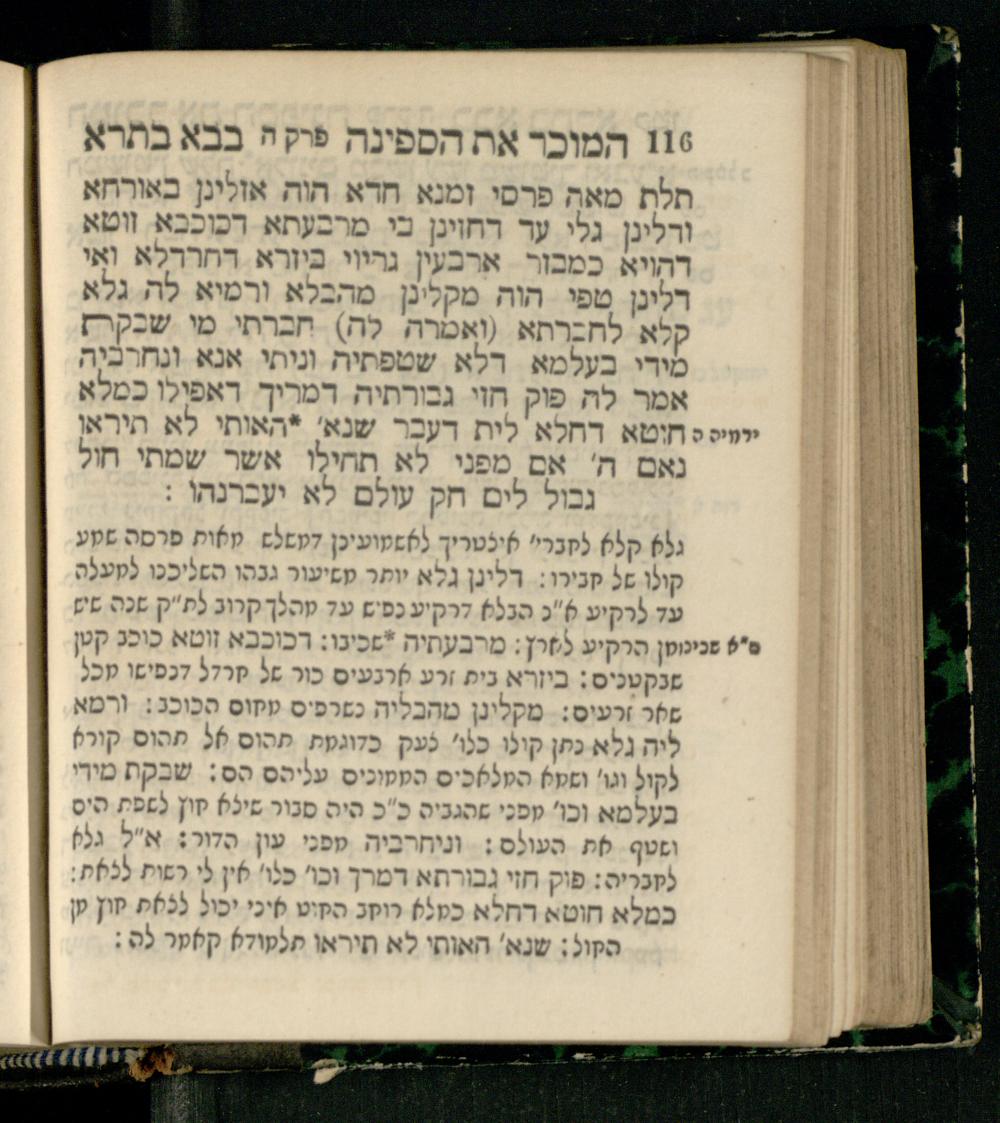 116 המוכר את הספינה פרק ה בבא בתרא
תלת מאה פרסי זמנא חדא הוה אזלינן באורחא
ודלינן גלי עד דחזינן בי מרבעתא דכוכבא זוטא
דהויא כמבזר ארבעין גריוי ביזרא דחרדלא ואי
דלינן טפי הוה מקלינן מהבלא ורמיא לה גלא
קלא לחברתא (ואמרה לה) חברתי מי שבקת
מידי בעלמא דלא שטפתיה וניתי אנא ונחרביה
אמר לה פוק חזי גבורתיה דמריך דאפילו כמלא
ירמיה ה חוטא דחלא לית דעבר שנא' *האותי לא תיראו
נאם ה' אם מפני לא תחילו אשר שמתי חול
גבול לים חק עולם לא יעברנהו :
גלא קלא לחברי' איצטריך לאשמועינן דמשלש מאות פרסה שמע
קולו של חבירו : דלינן גלא יותר משיעור גבהו השליכנו למעלה
עד לרקיע א"נ הבלא דרקיע נפיש עד מהלך קרוב לת"ק שנה שיש
ס"א שכיבו מן הרקיע לארץ : מרבעתיה *שכיבו : דכוכבא זוטא כוכב קטן
שבקטנים : ביזרא בית זרע ארבעים כור של חרדל דנפישו מכל
שאר זרעים : מקלינן מהבליה נשרפים מקום הכוכב : ורמא
ליה גלא נתן קולו כלו' צעק כדוגמת תהום אל תהום קורא
לקול וגו' ושמא המלאכים הממונים עליהם הם : שבקת מידי
בעלמא וכו' מפני שהגביה כ"כ היה סבור שיצא חוץ לשפת הים
ושטף את העולם : וניחרביה מפני עון הדור : א"ל גלא
לחבריה : פוק חזי גבורתא דמרך וכו' כלו' אין לי רשות לצאת :
כמלא חוטא דחלא כמלא רוחב החוט איני יכול לצאת חוץ מן
החול : שנא' האותי לא תיראו תלמודא קאמר לה :